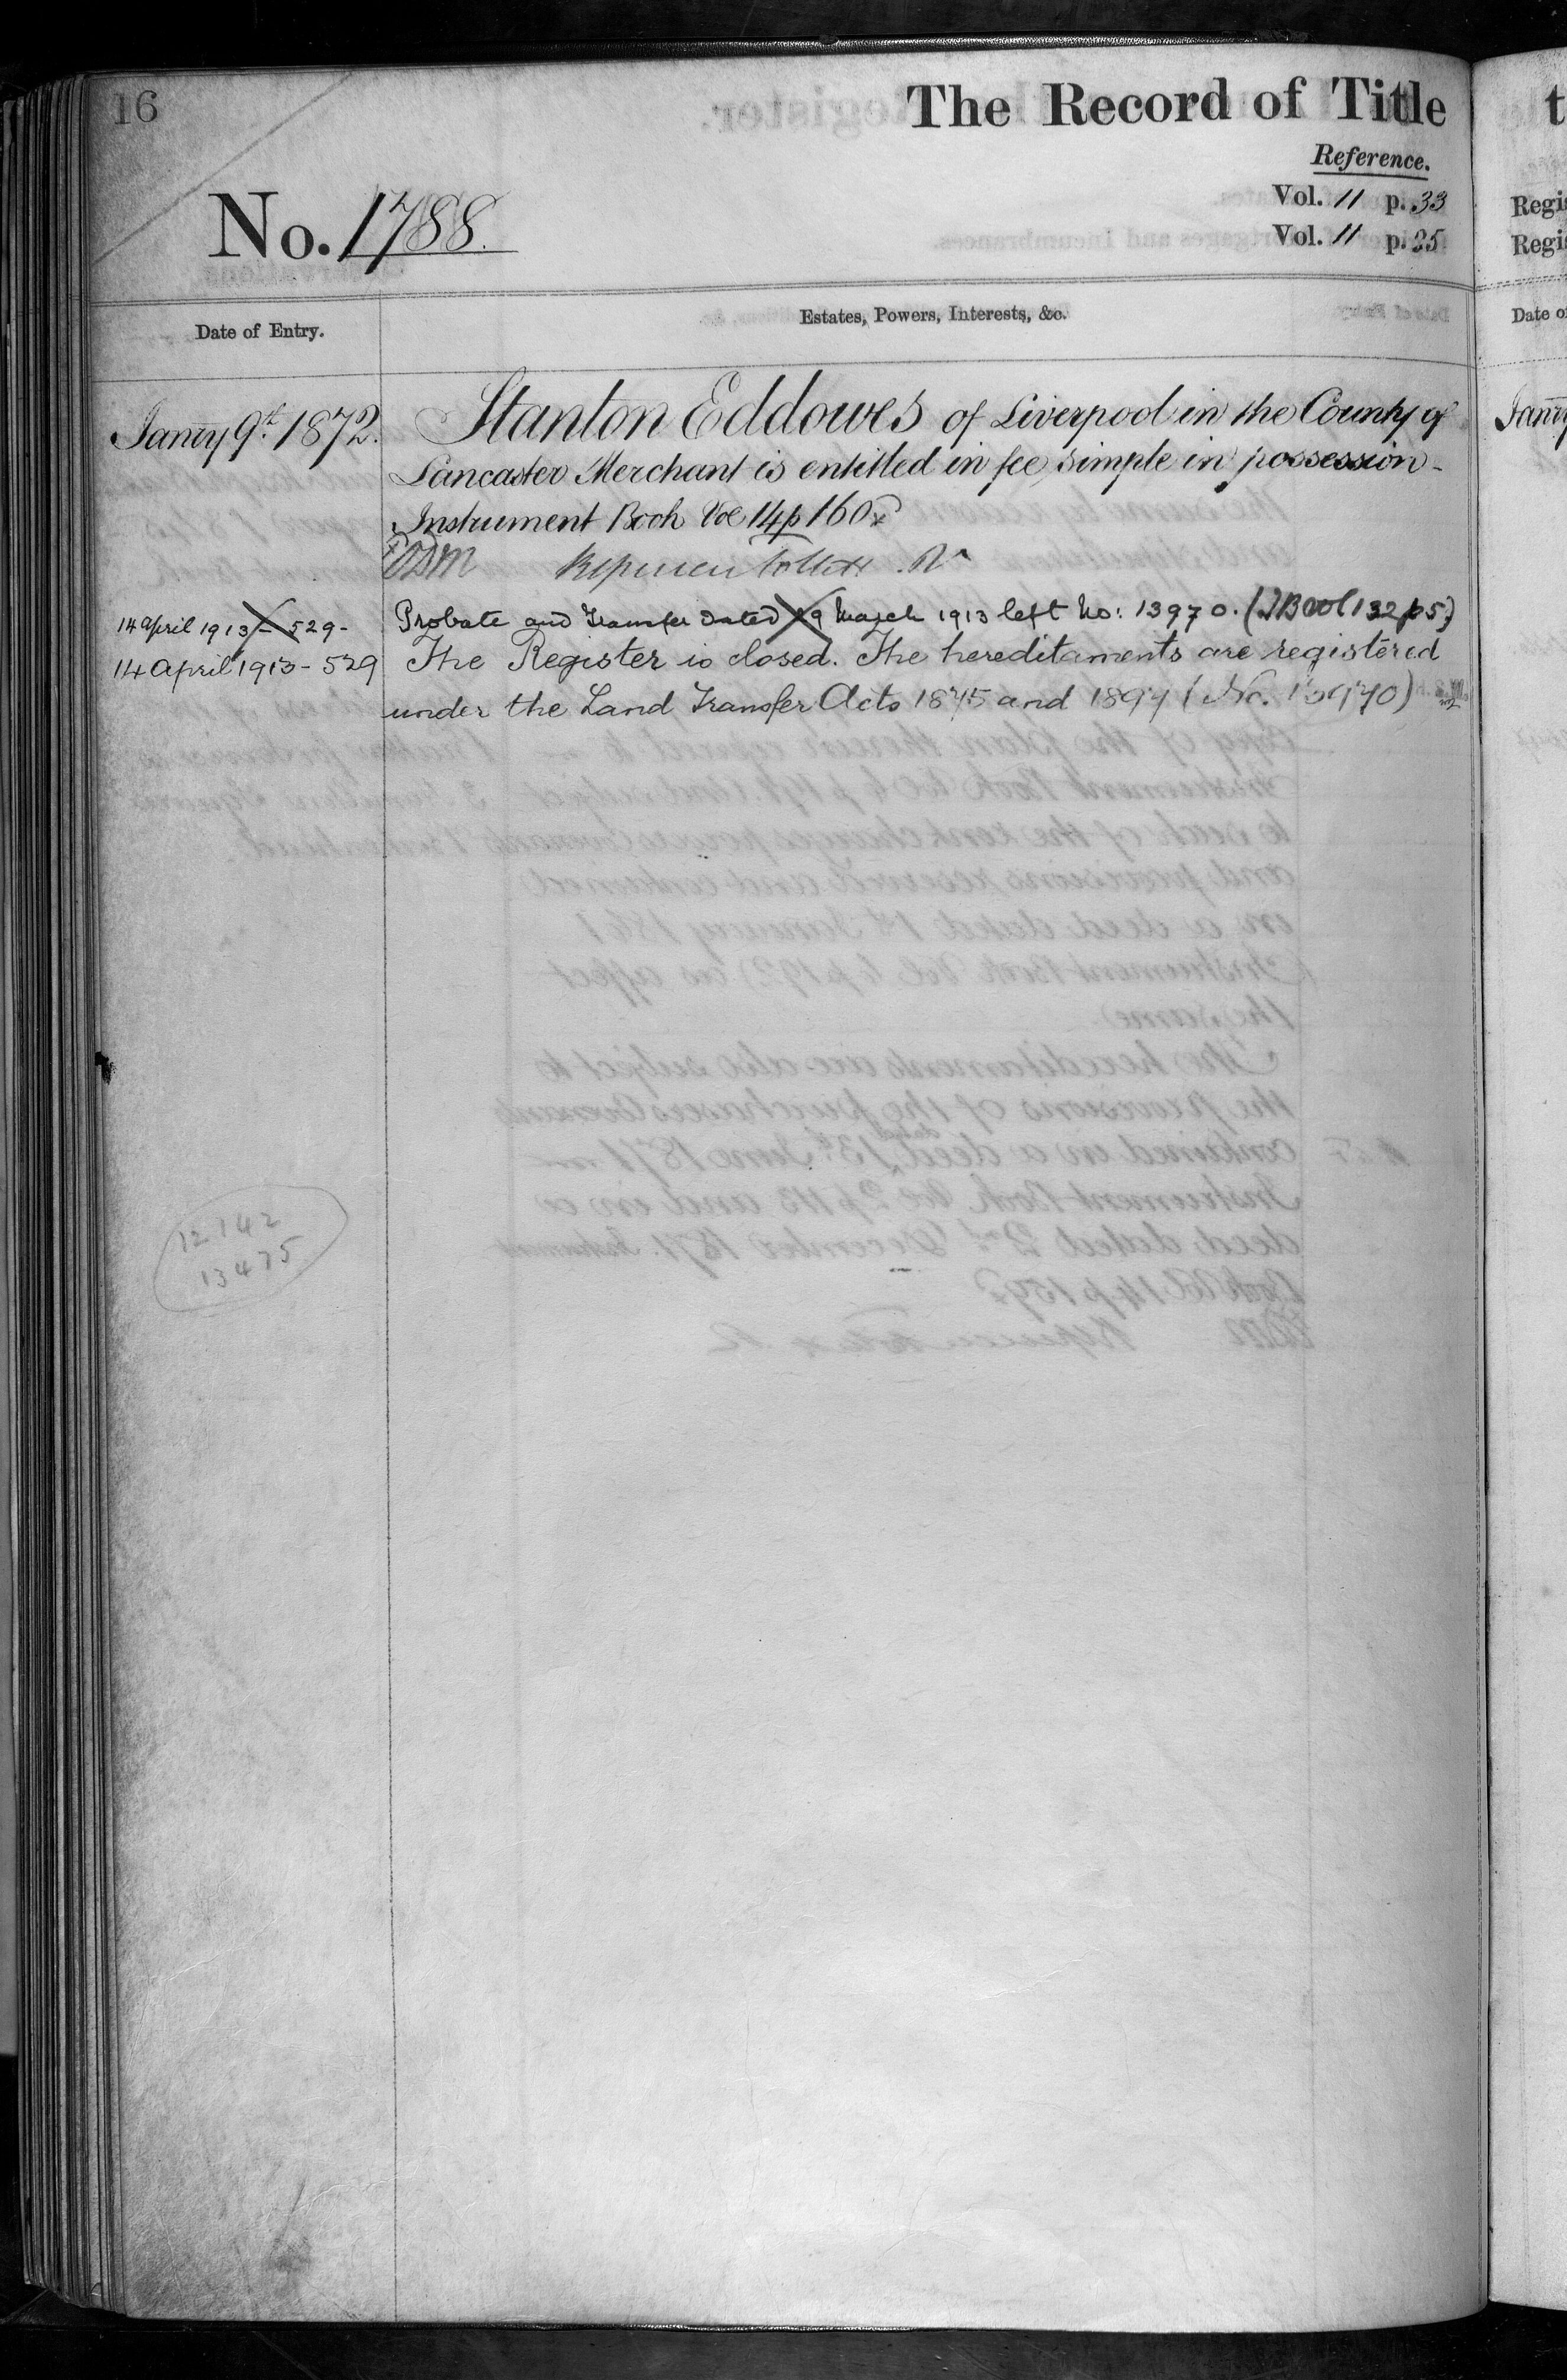 16
The Record of Title
Reference.
No. 1788.
Vol. 11 p. 33
Vol. 11 p. 25
Date of Entry.
Estates, Powers, Interests, &c.
Janry 9th 1872.
Stanton Eddowes of Liverpool in the County of
Lancaster Merchant is entitled in fee simple in possession-
Instrument Book Vol 14 p 160
14 April 1913 - 529-
Probate and Transfer dated 19 March 1913 left No: 13970. (IB vol 132 p5)
14 April 1913 - 529
The Register is closed. The hereditaments are registered
under the Land Transfer Acts 1875 and 1897 (No. 13970)
12142
13475
t
Regis
Regis
Date of
Janry